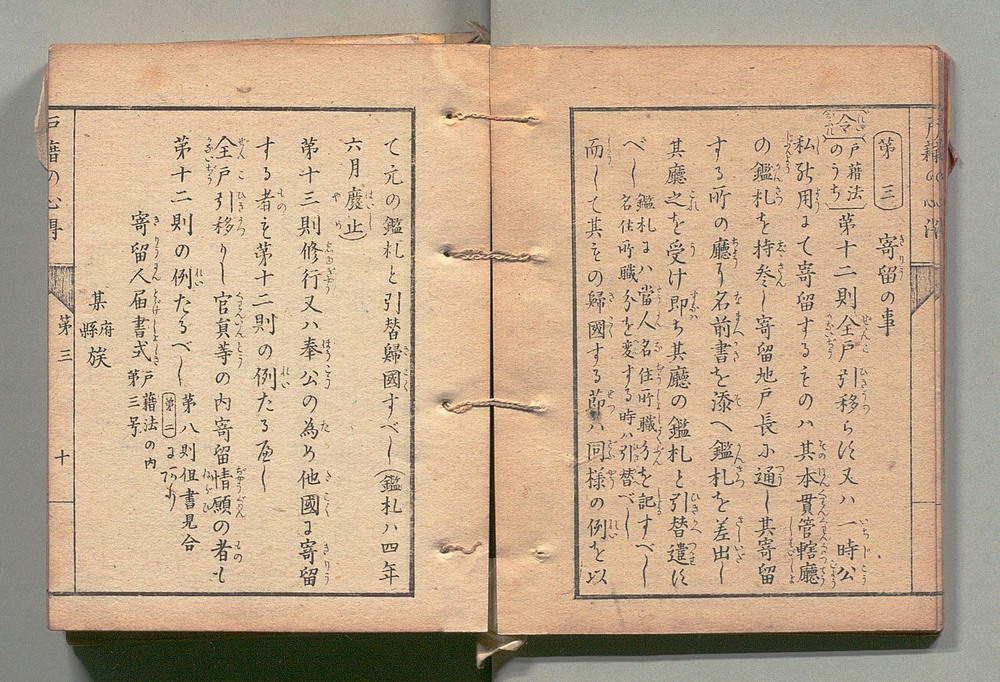 戸籍の心得
第三　寄留の事
令（戸籍法のうち）第十二則全戸引移らす又ハ一時公
私能用にて寄留するものハ其本貫管轄廳
の鑑札を持参し寄留地戸長に通し其寄留
する所の廳に名前書を添へ鑑札を差出し
其廳之を受け即ち其廳の鑑札と引替遣す
べし　鑑札にハ當人名住所職分を記すべし
名住所職分を変する時ハ引替べし
而して其もの歸國する節ハ同様の例を以
て元の鑑札と引替歸國すべし（鑑札ハ四年
六月廢止）
第十三則修行又ハ奉公の為め他國に寄留
する者も第十二則の例たるべし
全戸引移りし官員等の内寄留情願の者も
第十二則の例たるべし　第八則但書見合
第二に
寄留人届書式　戸籍法の内
第三号
某　府縣　族
戸籍の心得
第三
十